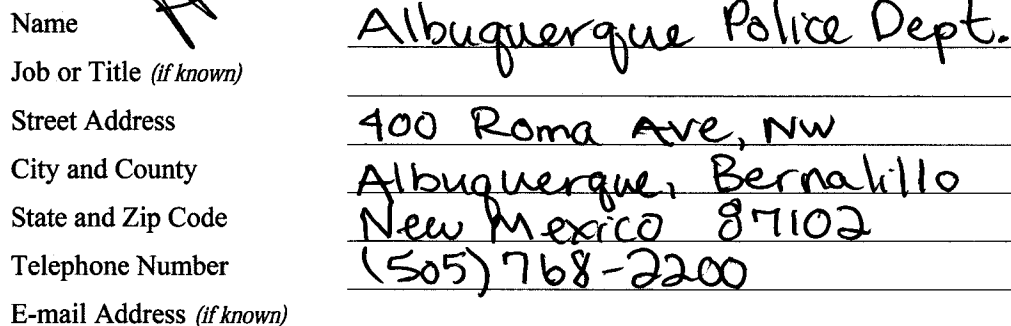 Name Albuquerque Police Dept.
Job or Title (if known)
Street Address 400 Roma Ave, NW
City and County Albuquerque, Bernalillo
State and Zip Code New Mexico 87102
Telephone Number (505) 768-2200
E-mail Address (if known)